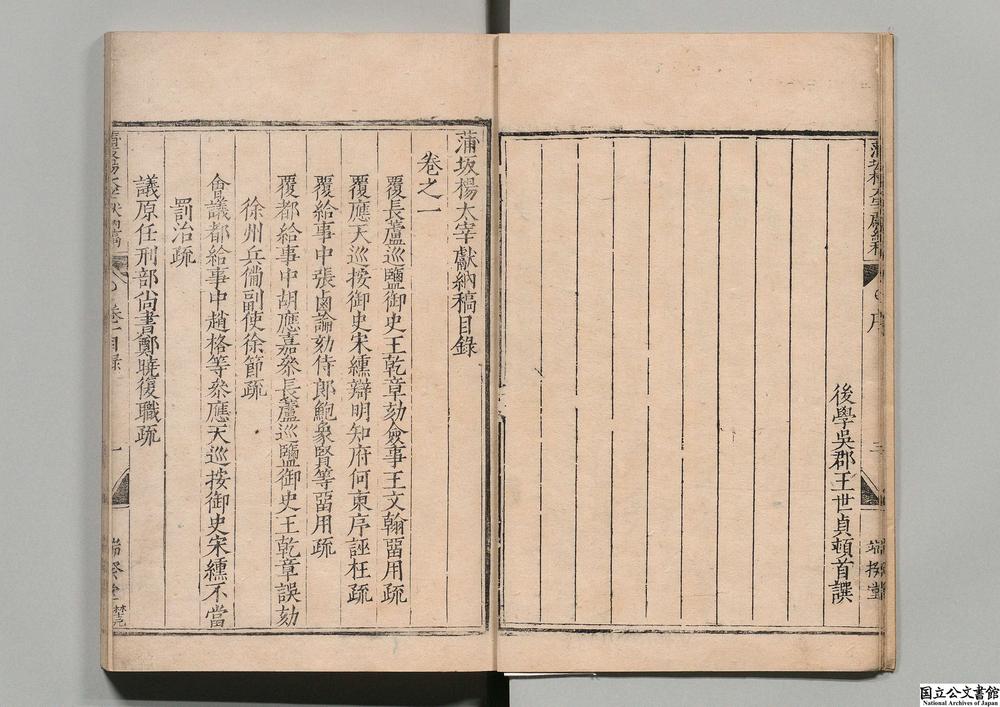 後學吳郡王世貞頓首譔
蒲坂楊太宰獻納稿目錄
卷之一
覆長蘆巡鹽御史王乾章劾僉事王文翰畱用疏
覆應天巡按御史宋纁辯明知府何東序誣枉疏
覆給事中張鹵論劾侍郎鮑象賢等畱用疏
覆都給事中胡應嘉叅長蘆巡鹽御史王乾章誤劾
徐州兵備副使徐節疏
會議都給事中趙格等叅應天巡按御史宋纁不當
罰治疏
議原任刑部尙書鄭曉復職疏
卷一目錄
一
国立公文書館
National Archives of Japan